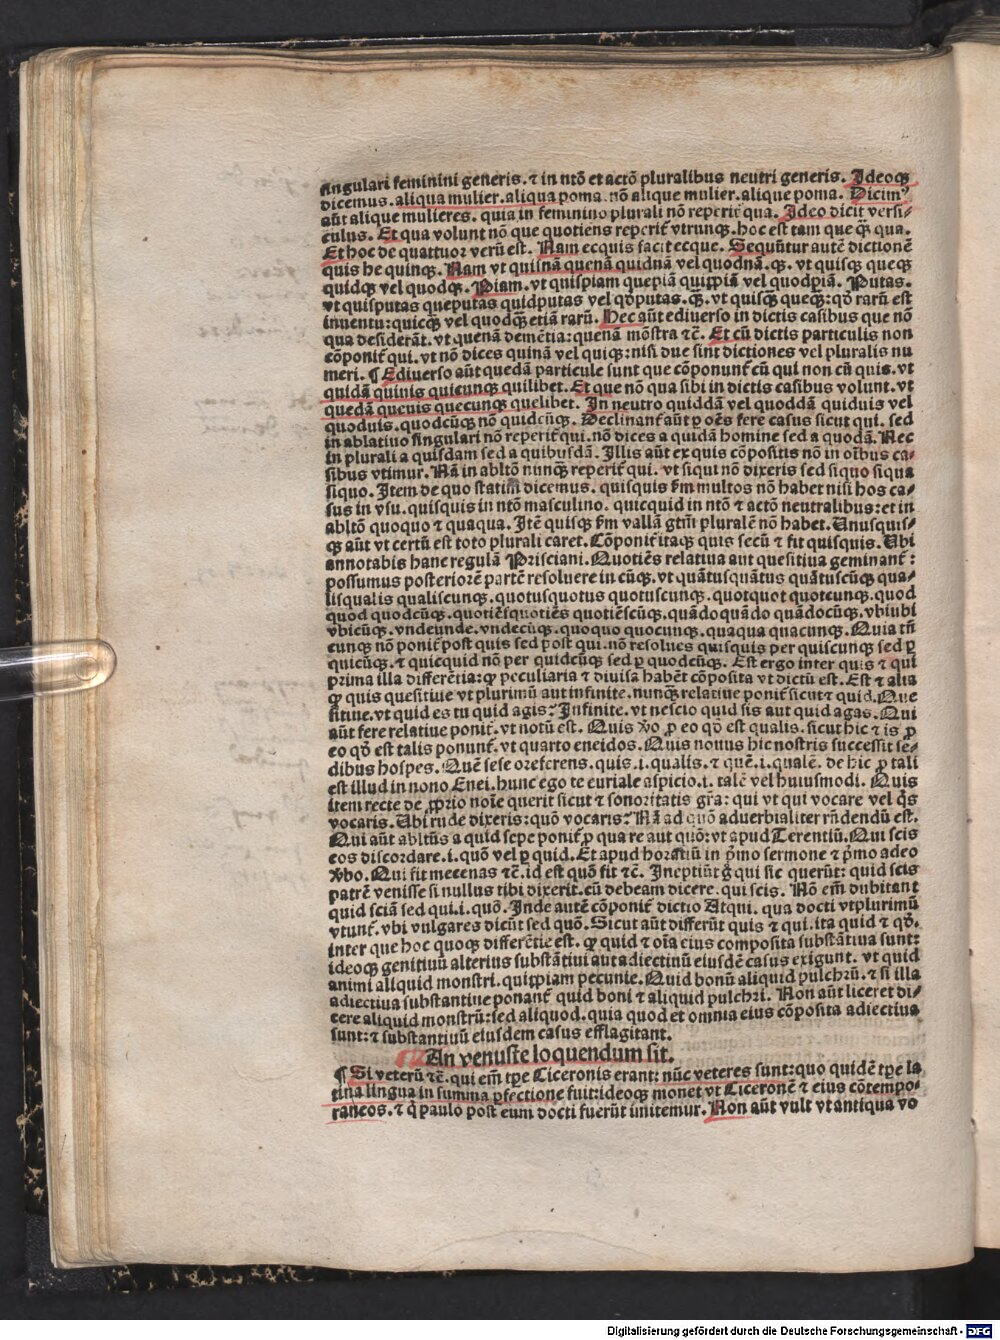 singulari feminini generis. ⁊ in ntō et actō pluralibus neutri generis. Jdeoqꝫ
dicemus. aliqua mulier. aliqua poma. nō alique mulier. alique poma. Dicimꝰ
aūt alique mulieres. quia in feminino plurali nō reperit̄ qua. Jdeo dicit versi-
culus. Et qua volunt nō que quotiens reperit̄ vtrunqꝫ. hoc est tam que q̄ꝫ qua.
Et hoc de quattuor verū est. Nam ecquis facit ecque. Sequūtur autē dictionē
quis he quinqꝫ. Nam vt quisnā quenā quidnā vel quodnā. qꝫ. vt quisqꝫ queqꝫ
quidqꝫ vel quodqꝫ. Piam. vt quispiam quepiā quippiā vel quodpiā. Putas.
vt quisputas queputas quidputas vel qd̄putas. qꝫ. vt quisqꝫ queqꝫ: qd̄ rarū est
inuentu: quicqꝫ vel quodqꝫ etiā rarū. Hec aūt ediuerso in dictis casibus que nō
qua desiderāt. vt quenā demētia: quenā mōstra ⁊c̄. Et cū dictis particulis non
cōponit̄ qui. vt nō dices quinā vel quiqꝫ: nisi due sint dictiones vel pluralis nu
meri. ¶ Ediuerso aūt quedā particule sunt que cōponunt̄ cū qui non cū quis. vt
quidā quiuis quicunqꝫ quilibet. Et que nō qua sibi in dictis casibus volunt. vt
quedā queuis quecunqꝫ quelibet. Jn neutro quiddā vel quoddā quiduis vel
quoduis. quodcūqꝫ nō quidcūqꝫ. Declinant̄ aūt ꝑ oēs fere casus sicut qui. sed
in ablatiuo singulari nō reperit̄ qui. nō dices a quidā homine sed a quodā. Nec
in plurali a quisdam sed a quibusdā. Jllis aūt ex quis cōpositis nō in oībus ca-
sibus vtimur. Nā in abltō nunqꝫ reperit̄ qui. vt siqui nō dixeris sed siquo siqua
siquo. Jtem de quo statim dicemus. quisquis ẜm multos nō habet nisi hos ca-
sus in vsu. quisquis in ntō masculino. quicquid in ntō ⁊ actō neutralibus: et in
abltō quoquo ⁊ quaqua. Jtē quisqꝫ ẜm vallā gtm̄ pluralē nō habet. Unusquis-
qꝫ aūt vt certū est toto plurali caret. Cōponit̄ itaqꝫ quis secū ⁊ fit quisquis. Ubi
annotabis hanc regulā Prisciani. Quotiēs relatiua aut quesitiua geminant̄:
possumus posteriorē partē resoluere in cūqꝫ. vt quātusquātus quātuscūqꝫ qua-
lisqualis qualiscunqꝫ. quotusquotus quotuscunqꝫ. quotquot quotcunqꝫ. quod
quod quodcūqꝫ. quotiēsquotiēs quotiēscūqꝫ. quādoquādo quādocūqꝫ. vbiubi
vbicūqꝫ. vndeunde. vndecūqꝫ. quoquo quocunqꝫ. quaqua quacunqꝫ. Quia tn̄
cunqꝫ nō ponit̄ post quis sed post qui. nō resolues quisquis per quiscunqꝫ sed ꝑ
quicūqꝫ. ⁊ quicquid nō per quidcūqꝫ sed ꝑ quodcūqꝫ. Est ergo inter quis ⁊ qui
prima illa differētia: ꝙ peculiaria ⁊ diuisa habēt cōposita vt dictū est. Est ⁊ alia
ꝙ quis quesitiue vt plurimū aut infinite. nunqꝫ relatiue ponit̄ sicut ⁊ quid. Que
sitiue. vt quid es tu quid agis? Jnfinite. vt nescio quid sis aut quid agas. Qui
aūt fere relatiue ponit̄. vt notū est. Quis v̄o ꝓ eo qd̄ est qualis. sicut hic ⁊ is ꝓ
eo qd̄ est talis ponunt̄. vt quarto eneidos. Quis nouus hic nostris successit se-
dibus hospes. Quē sese ore ferens. quis .i. qualis. ⁊ quē .i. qualē. de hic ꝓ tali
est illud in nono Enei. hunc ego te euriale aspicio .i. talē vel huiusmodi. Quis
item recte de ꝓprio noīe querit sicut ⁊ sonoritatis gr̄a: qui vt qui vocare vel q̄s
vocaris. Ubi rude dixeris: quō vocaris? Nā ad quō aduerbialiter rn̄dendū est.
Qui aūt abltūs a quid sepe ponit̄ ꝓ qua re aut quō: vt apud Terentiū. Qui scis
eos discordare .i. quō vel ꝑ quid. Et apud horatiū in p̄mo sermone ⁊ p̄mo adeo
v̄bo. Qui fit mecenas ⁊c̄. id est quō fit ⁊c̄. Jneptiūt g̊ qui sic querūt: quid scis
patrē venisse si nullus tibi dixerit. cū debeam dicere. qui scis. Nō em̄ dubitant
quid sciā sed qui .i. quō. Jnde autē cōponit̄ dictio Atqui. qua docti vtplurimū
vtunt̄. vbi vulgares dicūt sed quō. Sicut aūt differūt quis ⁊ qui. ita quid ⁊ qd̄.
inter que hoc quoqꝫ differētie est. ꝙ quid ⁊ oīa eius composita substātiua sunt:
ideoqꝫ genitiuū alterius substātiui aut adiectiuū eiusdē casus exigunt. vt quid
animi aliquid monstri. quippiam pecunie. Quid bonū aliquid pulchrū. ⁊ si illa
adiectiua substantiue ponant̄ quid boni ⁊ aliquid pulchri. Non aūt liceret di-
cere aliquid monstrū: sed aliquod. quia quod et omnia eius cōposita adiectiua
sunt: ⁊ substantiuū eiusdem casus efflagitant.
An venuste loquendum sit.
¶ Si veterū ⁊c̄. qui em̄ tp̄e Ciceronis erant: nūc veteres sunt: quo quidē tp̄e la
tina lingua in summa ꝑfectione fuit: ideoqꝫ monet vt Ciceronē ⁊ eius cōtempo-
raneos. ⁊ q̄ paulo post eum docti fuerūt imitemur. Non aūt vult vt antiqua vo
Digitalisierung gefördert durch die Deutsche Forschungsgemeinschaft - DFG